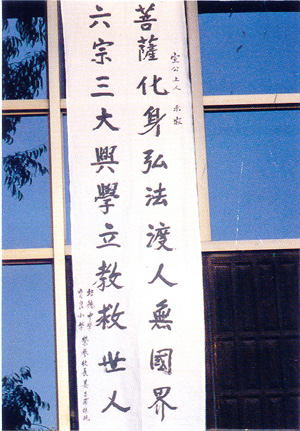 宣公上人 示寂
菩薩化身弘法渡人無國界
六宗三大興學立教救世人
培德中學
育良小學